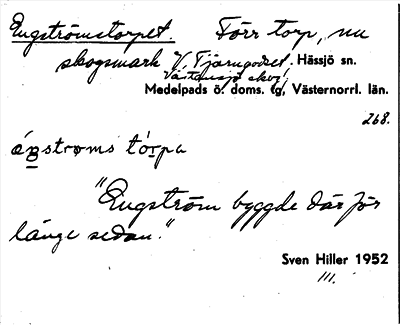 Engströmstorpet. Förr torp, nu
skogsmark V. Tjärngodset. Hässjö sn.
Västansjö skog.
Medelpads ö. doms. tg, Västernorrl. län.
268.
áŋstrøms tórpa
"Engström byggde där för
länge sedan."
Sven Hiller 1952
III.